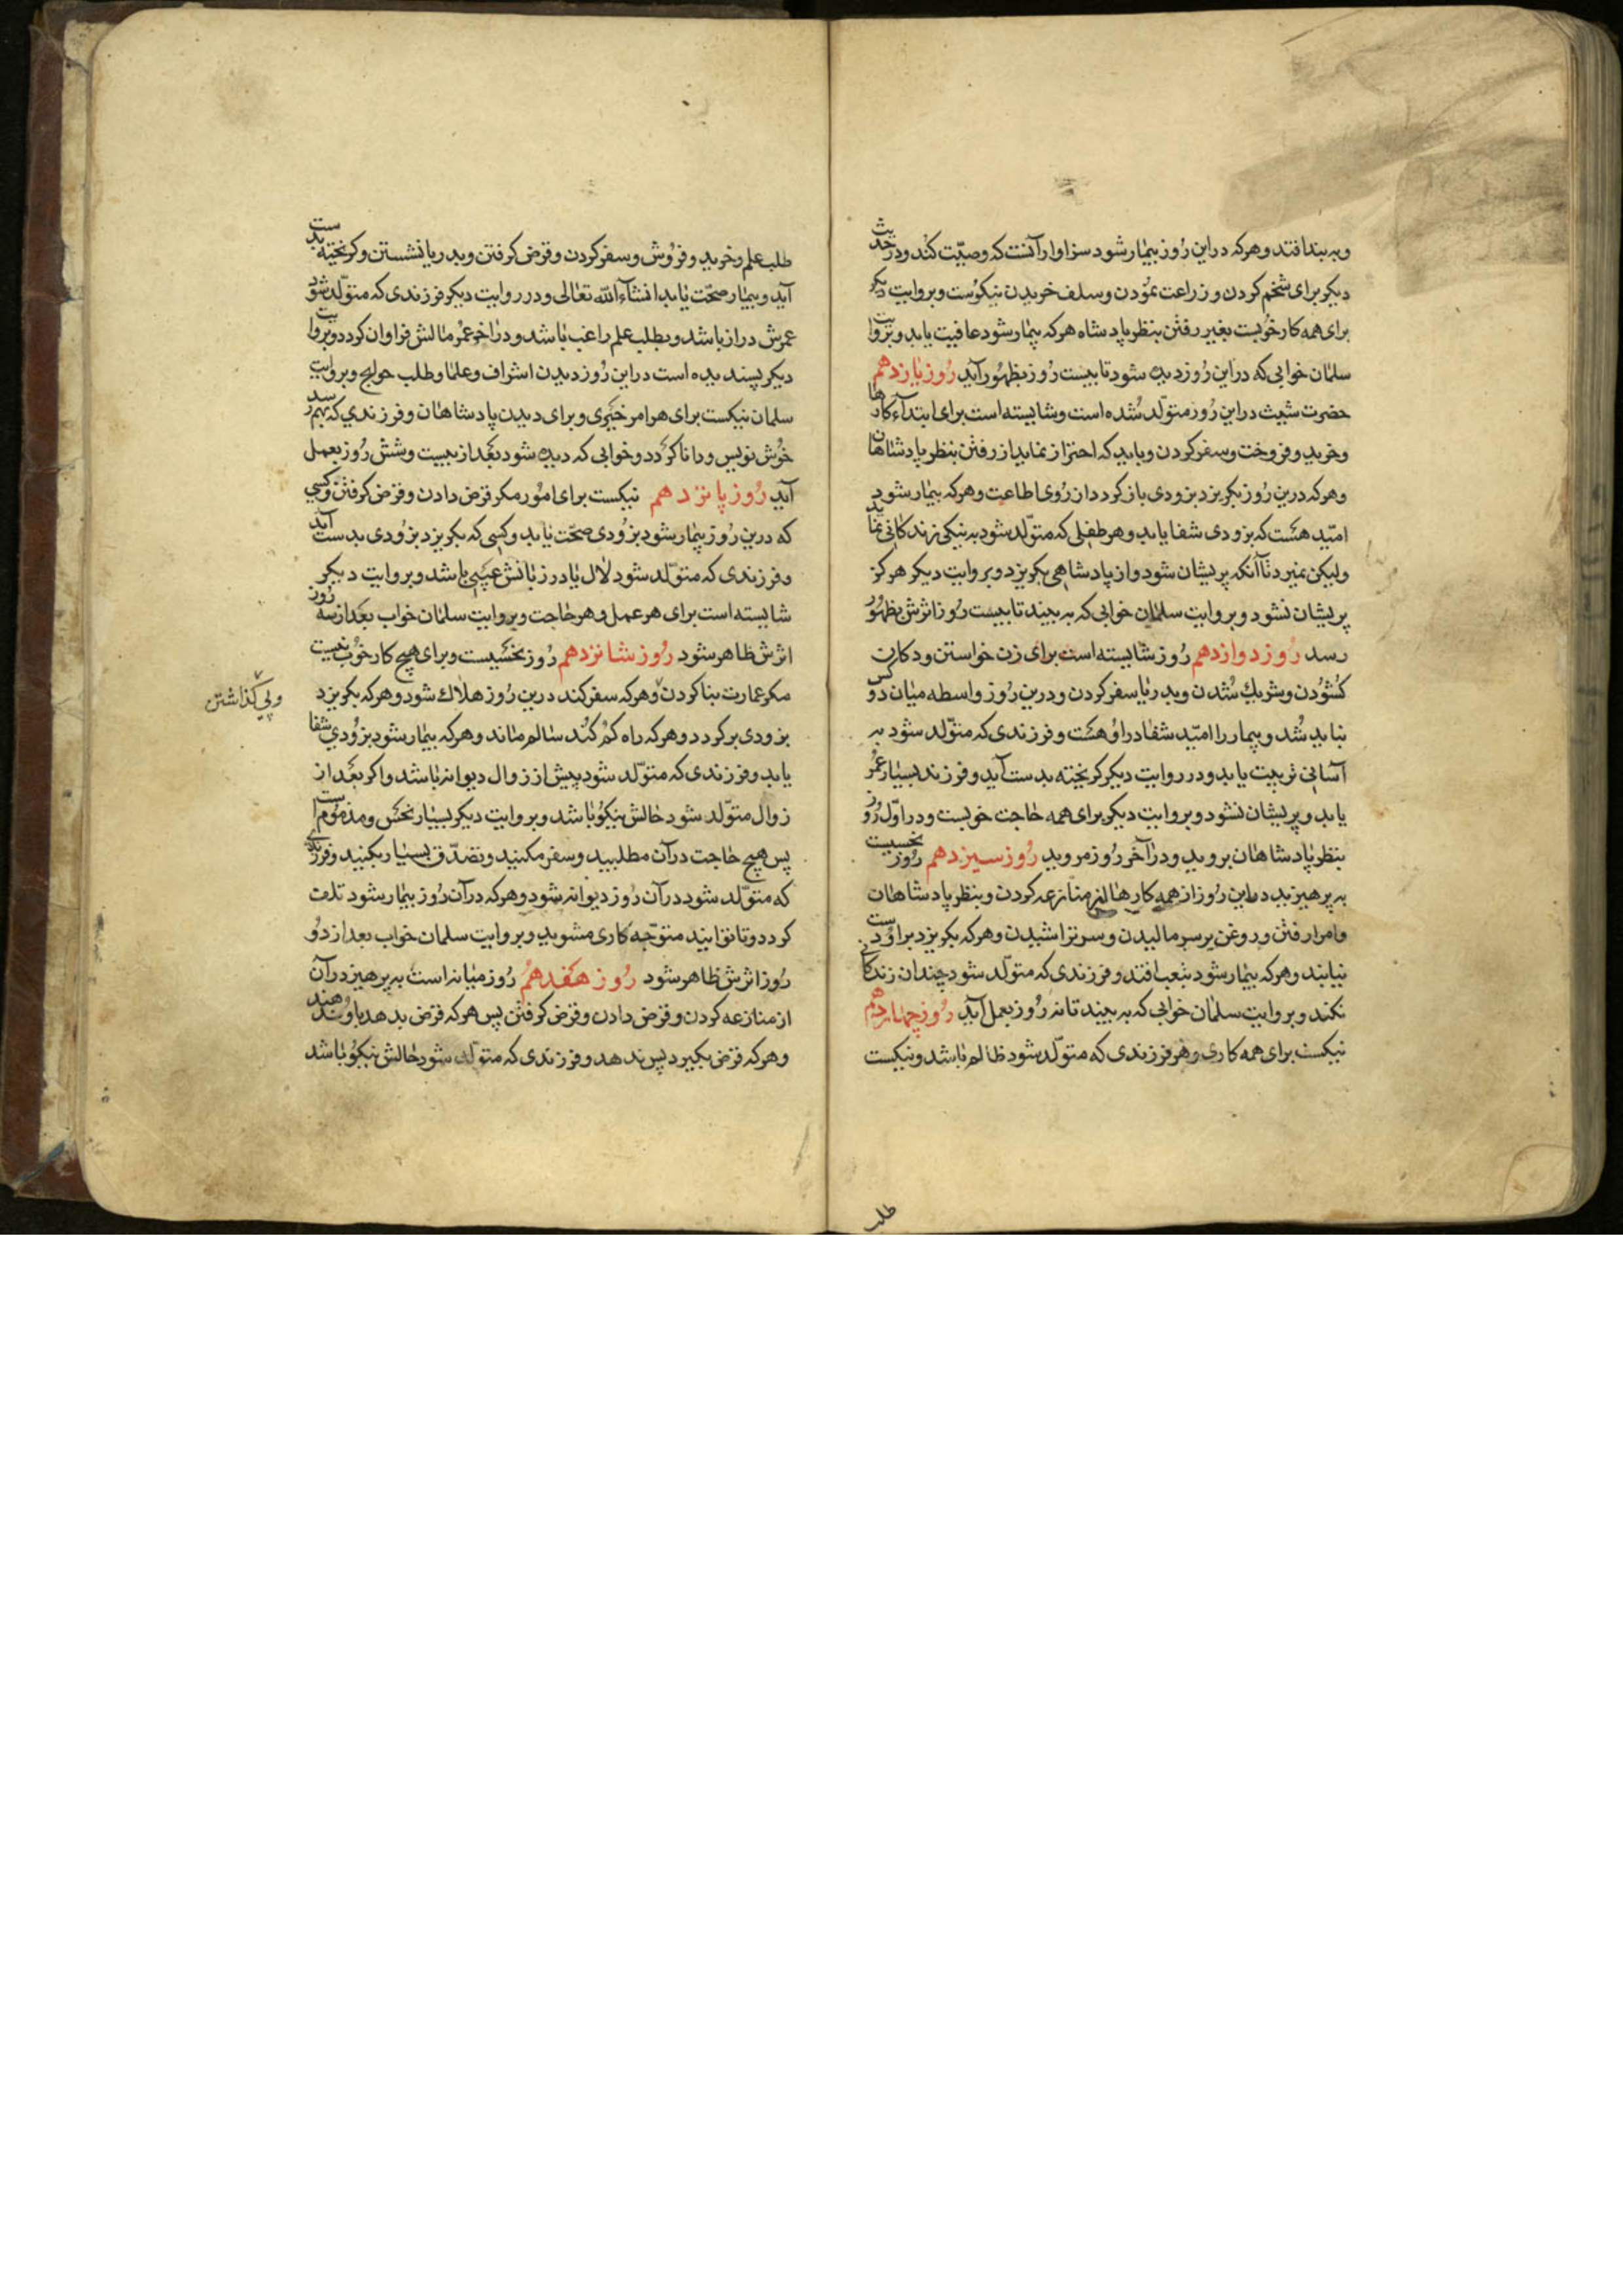 وبه بند افتد و هرکه در این رُوز بیمٰار شود سزاوار آنست که وصیّت کُند و در حدیث
دیکر برای شخم کردن و زراعت نمُودن و سلف خریدن نیکوُست و بروایت دیکر
برای همه کار خوُبست بغیر رفتن بنظر پادشاه هرکه بیمٰار شود عافیت یابد و بروایت
سلمٰان خوابی که در این رُوز دیده شود تا بیست رُوز بظهُور آید رُوز یٰازدهم
حضرت شیث در این رُوز متولّد شُده است و شایسته است برای ابتدآء کارهٰا
و خرید و فروخت و سفر کردن و باید که احتراز نماید از رفتن بنظر پادشاهان
و هرکه درین رُوز بکریزد بزودی باز کردد از رُوی اطاعت و هرکه بیمٰار شود
امّید هست که بزودی شفا یابد و هر طفلی که متولّد شود به نیکی زندکانی نمٰاید
ولیکن نمیرد تٰا آنکه پریشان شود و از پادشاهی بکریزد و بروایت دیکر هرکز
پریشان نشود و بروایت سلمٰان خوابی که به بیند تا بیست رُوز اثرش بظهُور
رسد رُوز دوازدهم رُوز شایسته است برای زن خواستن و دکان
کشوُدن و شریك شُدن و بدریٰا سفر کردن و درین رُوز واسطه میٰان دو کس
نباید شُد و بیمار را امّید شفا در او هست و فرزندی که متولّد شود به
آسانی تربیت یابد و در روایت دیکر کریخته بدست آید و فرزند بسیٰار عُمْر
یابد و پریشان نشود و بروایت دیکر برای همه حٰاجت خوبست و در اوّل رُوز
بنظر پٰادشاهٰان بروید و در آخر رُوز مروید رُوز سیزدهم رُوز نحسیست
به پرهیزید در این رُوز از همه کارهٰا از منازعه کردن و بنظر پادشاهٰان
و امرا رفتن و روغن بر سر مالیدن و سر تراشیدن و هرکه بکریزد بر او دست
نیابند و هرکه بیمٰار شود بتعب افتد و فرزندی که متولّد شود چندان زندکانی
نکند و بروایت سلمٰان خوابی که به بیند تا نه رُوز بعمل آید رُوز چهٰاردهم
نیکست برای همه کاری و هر فرزندی که متولّد شود ظالم بٰاشد و نیکست
طلب
طلب علم و خرید و فرُوش و سفر کردن و قرض کرفتن و بدریا نشستن و کریخته بدست
آید و بیمٰار صحّت یٰابد انشآء اللّه تعٰالی و در روایت دیکر فرزندی که متولّد شود
عمرش دراز باشد و بطلب علم راغب بٰاشد و در آخر عمْر مٰالش فراوان کردد و بروایت
دیکر پسندیده است در این رُوز دیدن اشراف و علمٰا و طلب حوایج و بروایت
سلمان نیکست برای هر امر خیری و برای دیدن پادشاهٰان و فرزندی که بهم رسد
خُوش نویس و دانا کردد و خوابی که دیده شود بعد از بیست و شش رُوز بعمل
آید رُوز پانزدهم نیکست برای امُور مکر قرض دادن و قرض کرفتن و کسی
که درین رُوز بیمٰار شود بزوُدی صحّت یٰابد و کسی که بکریزد بزوُدی بدست آید
و فرزندی که متولّد شود لال یٰا در زبانش عیبی باشد و بروایت دیکر
شایسته است برای هر عمل و هر حٰاجت و بروایت سلمٰان خواب بعد از سه رُوز
اثرش ظاهر شود رُوز شانزدهم رُوز نحسیست و برای هیچ کار خوُب نیست
مکر عمارت بنا کردن و هرکه سفر کند درین رُوز هلاك شود و هرکه بکریزد
وپی کذاشتن
بزودی برکردد و هرکه راه کم کُند سٰالم مٰاند و هرکه بیمٰار شود بزوُدی شفا
یابد و فرزندی که متولّد شود پیش از زوال دیوانه بٰاشد و اکر بعد از
زوال متولّد شود حٰالش نیکوُ باشد و بروایت دیکر بسیٰار نحس و مذموُم است
پس هیچ حٰاجت در آن مطلبید و سفر مکنید و تصدّق بسیٰار بکنید و فرزندی
که متولّد شود در آن رُوز دیوانه شود و هرکه در آن رُوز بیمٰار شود تلف
کردد و تا توانید متوجّه کاری مشوید و بروایت سلمان خواب بعد از دو
رُوز اثرش ظاهر شود رُوز هفدهم رُوز میٰانه است به پرهیز در آن
از منازعه کردن و قرض دادن و قرض کرفتن پس هرکه قرض بدهد باو ندهند
و هرکه قرض بکیرد پس ندهد و فرزندی که متولّد شود حٰالش نیکوُ بٰاشد